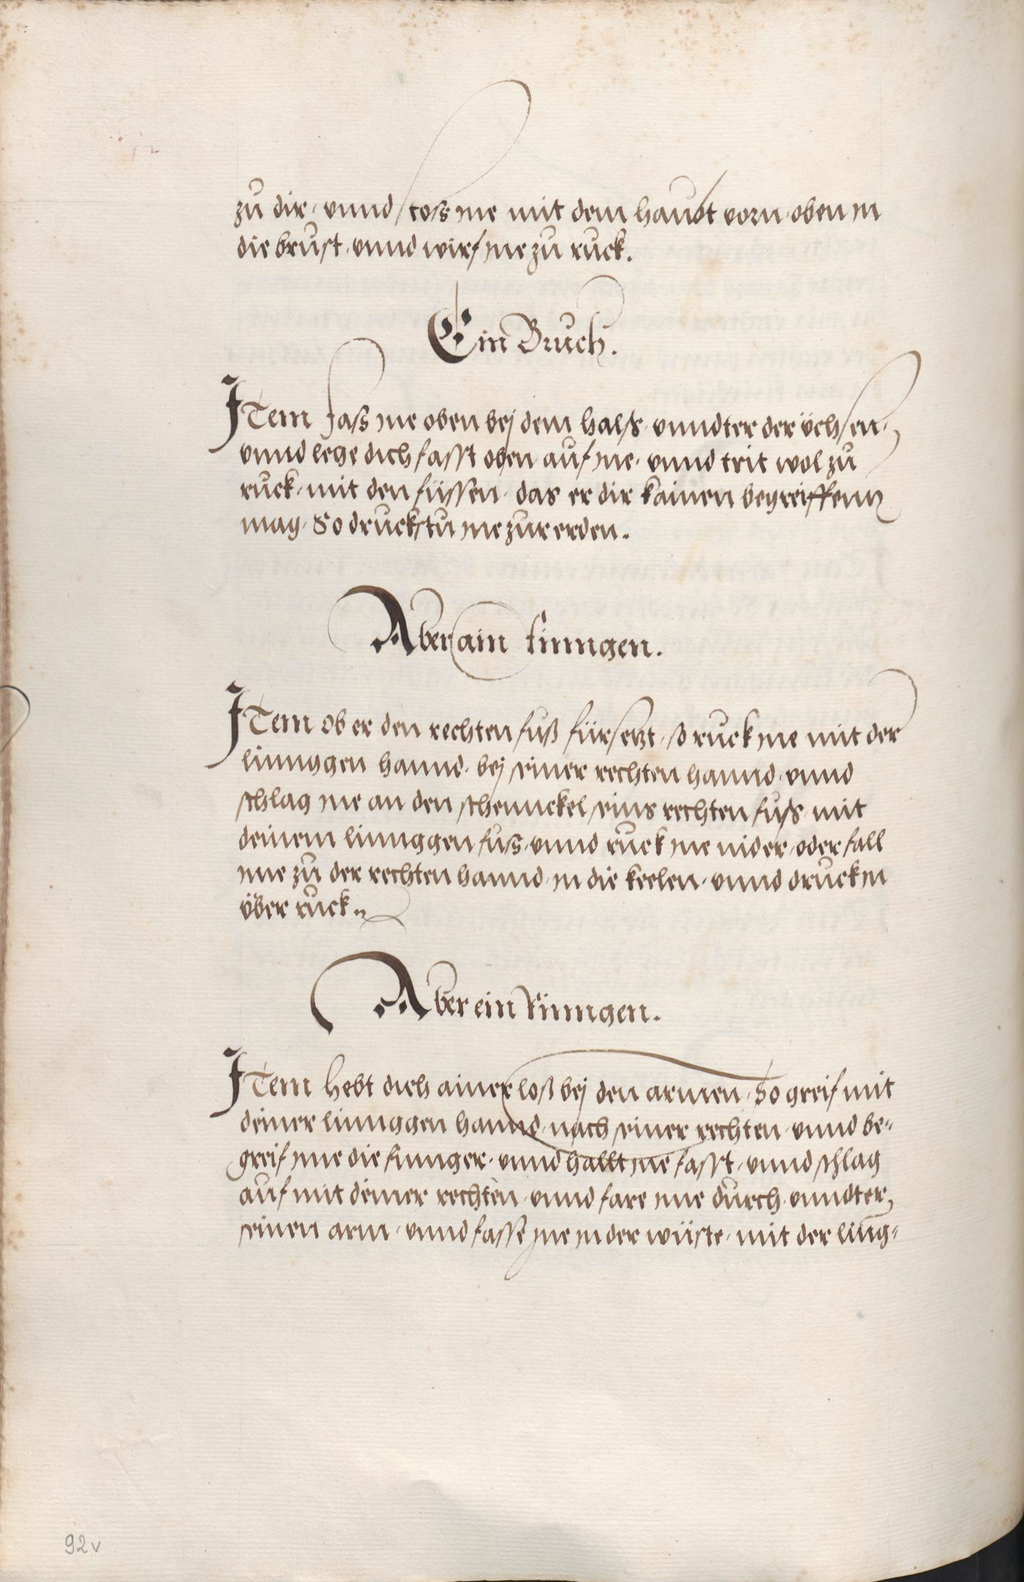 zu dir, vnnd stoss jne mit dem haubt vorn oben in
die brust, vnnd wirf jne zu ruck.
Ein Bruch.
Item fass jne oben bej dem halss, vnndter der üchsen,
vnnd lege dich fasst oben auf jne, vnnd trit wol zu
ruck, mit den füssen, das er dir kainen begreiffenn
mag, So druckstu jne zur erden.
Aber ain Ringen.
Item ob er den rechten fuß fürsetzt, so ruck jne mit der
linnggen hannd, bej seiner rechten hannd, vnnd
schlag jne an den schennckel seins rechten fuss, mit
deinem linnggen fuss, vnnd ruck jne nider, oder fall
jme zu der rechten hannd, in die keelen, vnnd druck in
über ruck.
Aber ein Ringen.
Item hebt dich ainer loß bej den armen, So greif mit
deiner linnggen hannd, nach seiner rechten, vnnd be=
greif jme die finnger, vnnd hallt jne fasst, vnnd schlag
auf mit deiner rechten, vnnd fare jme durch, vnndter
seinen arm, vnnd fasse jne in der wüste, mit der ling=
92v